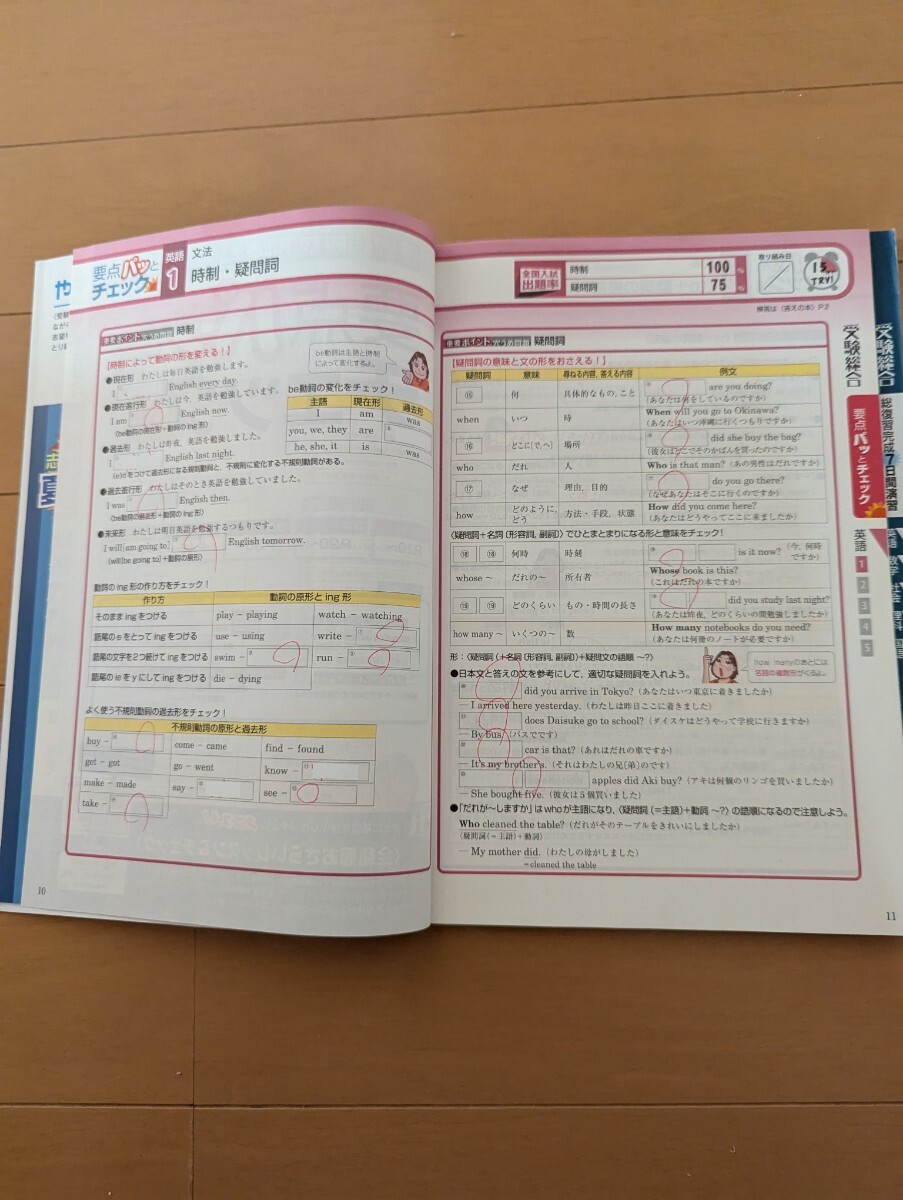 要点パッとチェック
英語 1
文法
時制・疑問詞
重要ポイント 穴うめ問題 時制
【時制によって動詞の形を変える！】
be動詞は主語と時制によって変化するよ。
●現在形 わたしは毎日英語を勉強します。
I English every day.
●現在進行形 わたしは今、英語を勉強しています。
I am English now.
(be動詞の現在形＋動詞のing形)
●過去形 わたしは昨夜、英語を勉強しました。
I English last night.
(e)dをつけて過去形になる規則動詞と、不規則に変化する不規則動詞がある。
●過去進行形 わたしはそのとき英語を勉強していました。
I was English then.
(be動詞の過去形＋動詞のing形)
●未来形 わたしは明日英語を勉強するつもりです。
I will[am going to] English tomorrow.
(will[be going to]＋動詞の原形)
be動詞の変化をチェック！
主語 現在形 過去形
I am was
you, we, they are
he, she, it is was
動詞の ing 形の作り方をチェック！
作り方 動詞の原形と ing 形
そのまま ing をつける play – playing watch – watching
語尾の e をとって ing をつける use – using write –
語尾の文字を2つ続けて ing をつける swim – run –
語尾の ie を y にして ing をつける die – dying
よく使う不規則動詞の過去形をチェック！
不規則動詞の原形と過去形
buy – come – came find – found
get – got go – went know –
make – made say – see –
take –
10
全国入試出題率
時制 100 %
疑問詞 75 %
取り組み日
15分 TRY!
解答は〈答えの本〉P.2
重要ポイント 穴うめ問題 疑問詞
【疑問詞の意味と文の形をおさえる！】
疑問詞 意味 尋ねる内容、答える内容 例文
⑮ 何 具体的なもの、こと are you doing?
(あなたは何をしているのですか)
when いつ 時 When will you go to Okinawa?
(あなたはいつ沖縄に行くつもりですか)
⑯ どこに[で、へ] 場所 did she buy the bag?
(彼女はどこでそのかばんを買ったのですか)
who だれ 人 Who is that man? (あの男性はだれですか)
⑰ なぜ 理由、目的 do you go there?
(なぜあなたはそこに行くのですか)
how どのように、どう 方法・手段、状態 How did you come here?
(あなたはどうやってここに来ましたか)
〈疑問詞＋名詞〔形容詞、副詞〕〉でひとまとまりになる形と意味をチェック！
⑱ ⑱ 何時 時刻 is it now? (今、何時ですか)
whose ～ だれの～ 所有者 Whose book is this?
(これはだれの本ですか)
⑲ ⑲ どのくらい もの・時間の長さ did you study last night?
(あなたは昨夜、どのくらいの間勉強しましたか)
how many ～ いくつの～ 数 How many notebooks do you need?
(あなたは何冊のノートが必要ですか)
形：〈疑問詞(＋名詞〔形容詞、副詞〕)＋疑問文の語順 ～?〉
how many のあとには名詞の複数形がくるよ。
●日本文と答えの文を参考にして、適切な疑問詞を入れよう。
did you arrive in Tokyo? (あなたはいつ東京に着きましたか)
— I arrived here yesterday. (わたしは昨日ここに着きました)
does Daisuke go to school? (ダイスケはどうやって学校に行きますか)
— By bus. (バスでです)
car is that? (あれはだれの車ですか)
— It's my brother's. (それはわたしの兄〔弟〕のです)
apples did Aki buy? (アキは何個のリンゴを買いましたか)
— She bought five. (彼女は5個買いました)
●「だれが～しますか」は who が主語になり、〈疑問詞(＝主語)＋動詞 ～?〉の語順になるので注意しよう。
Who cleaned the table? (だれがそのテーブルをきれいにしましたか)
(疑問詞(＝主語)＋動詞)
— My mother did. (わたしの母がしました)
=cleaned the table
11
受験総合
要点パッとチェック
英語
1
2
3
4
5
受験総合
総復習完成7日間演習
英語